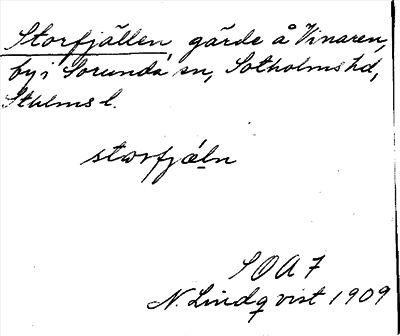 Storfjällen, gärde å Vinaren,
by i Sorunda sn, Sotholms hd,
Sthlms l.
storfjäln
SOA 7
N. Lindqvist 1909